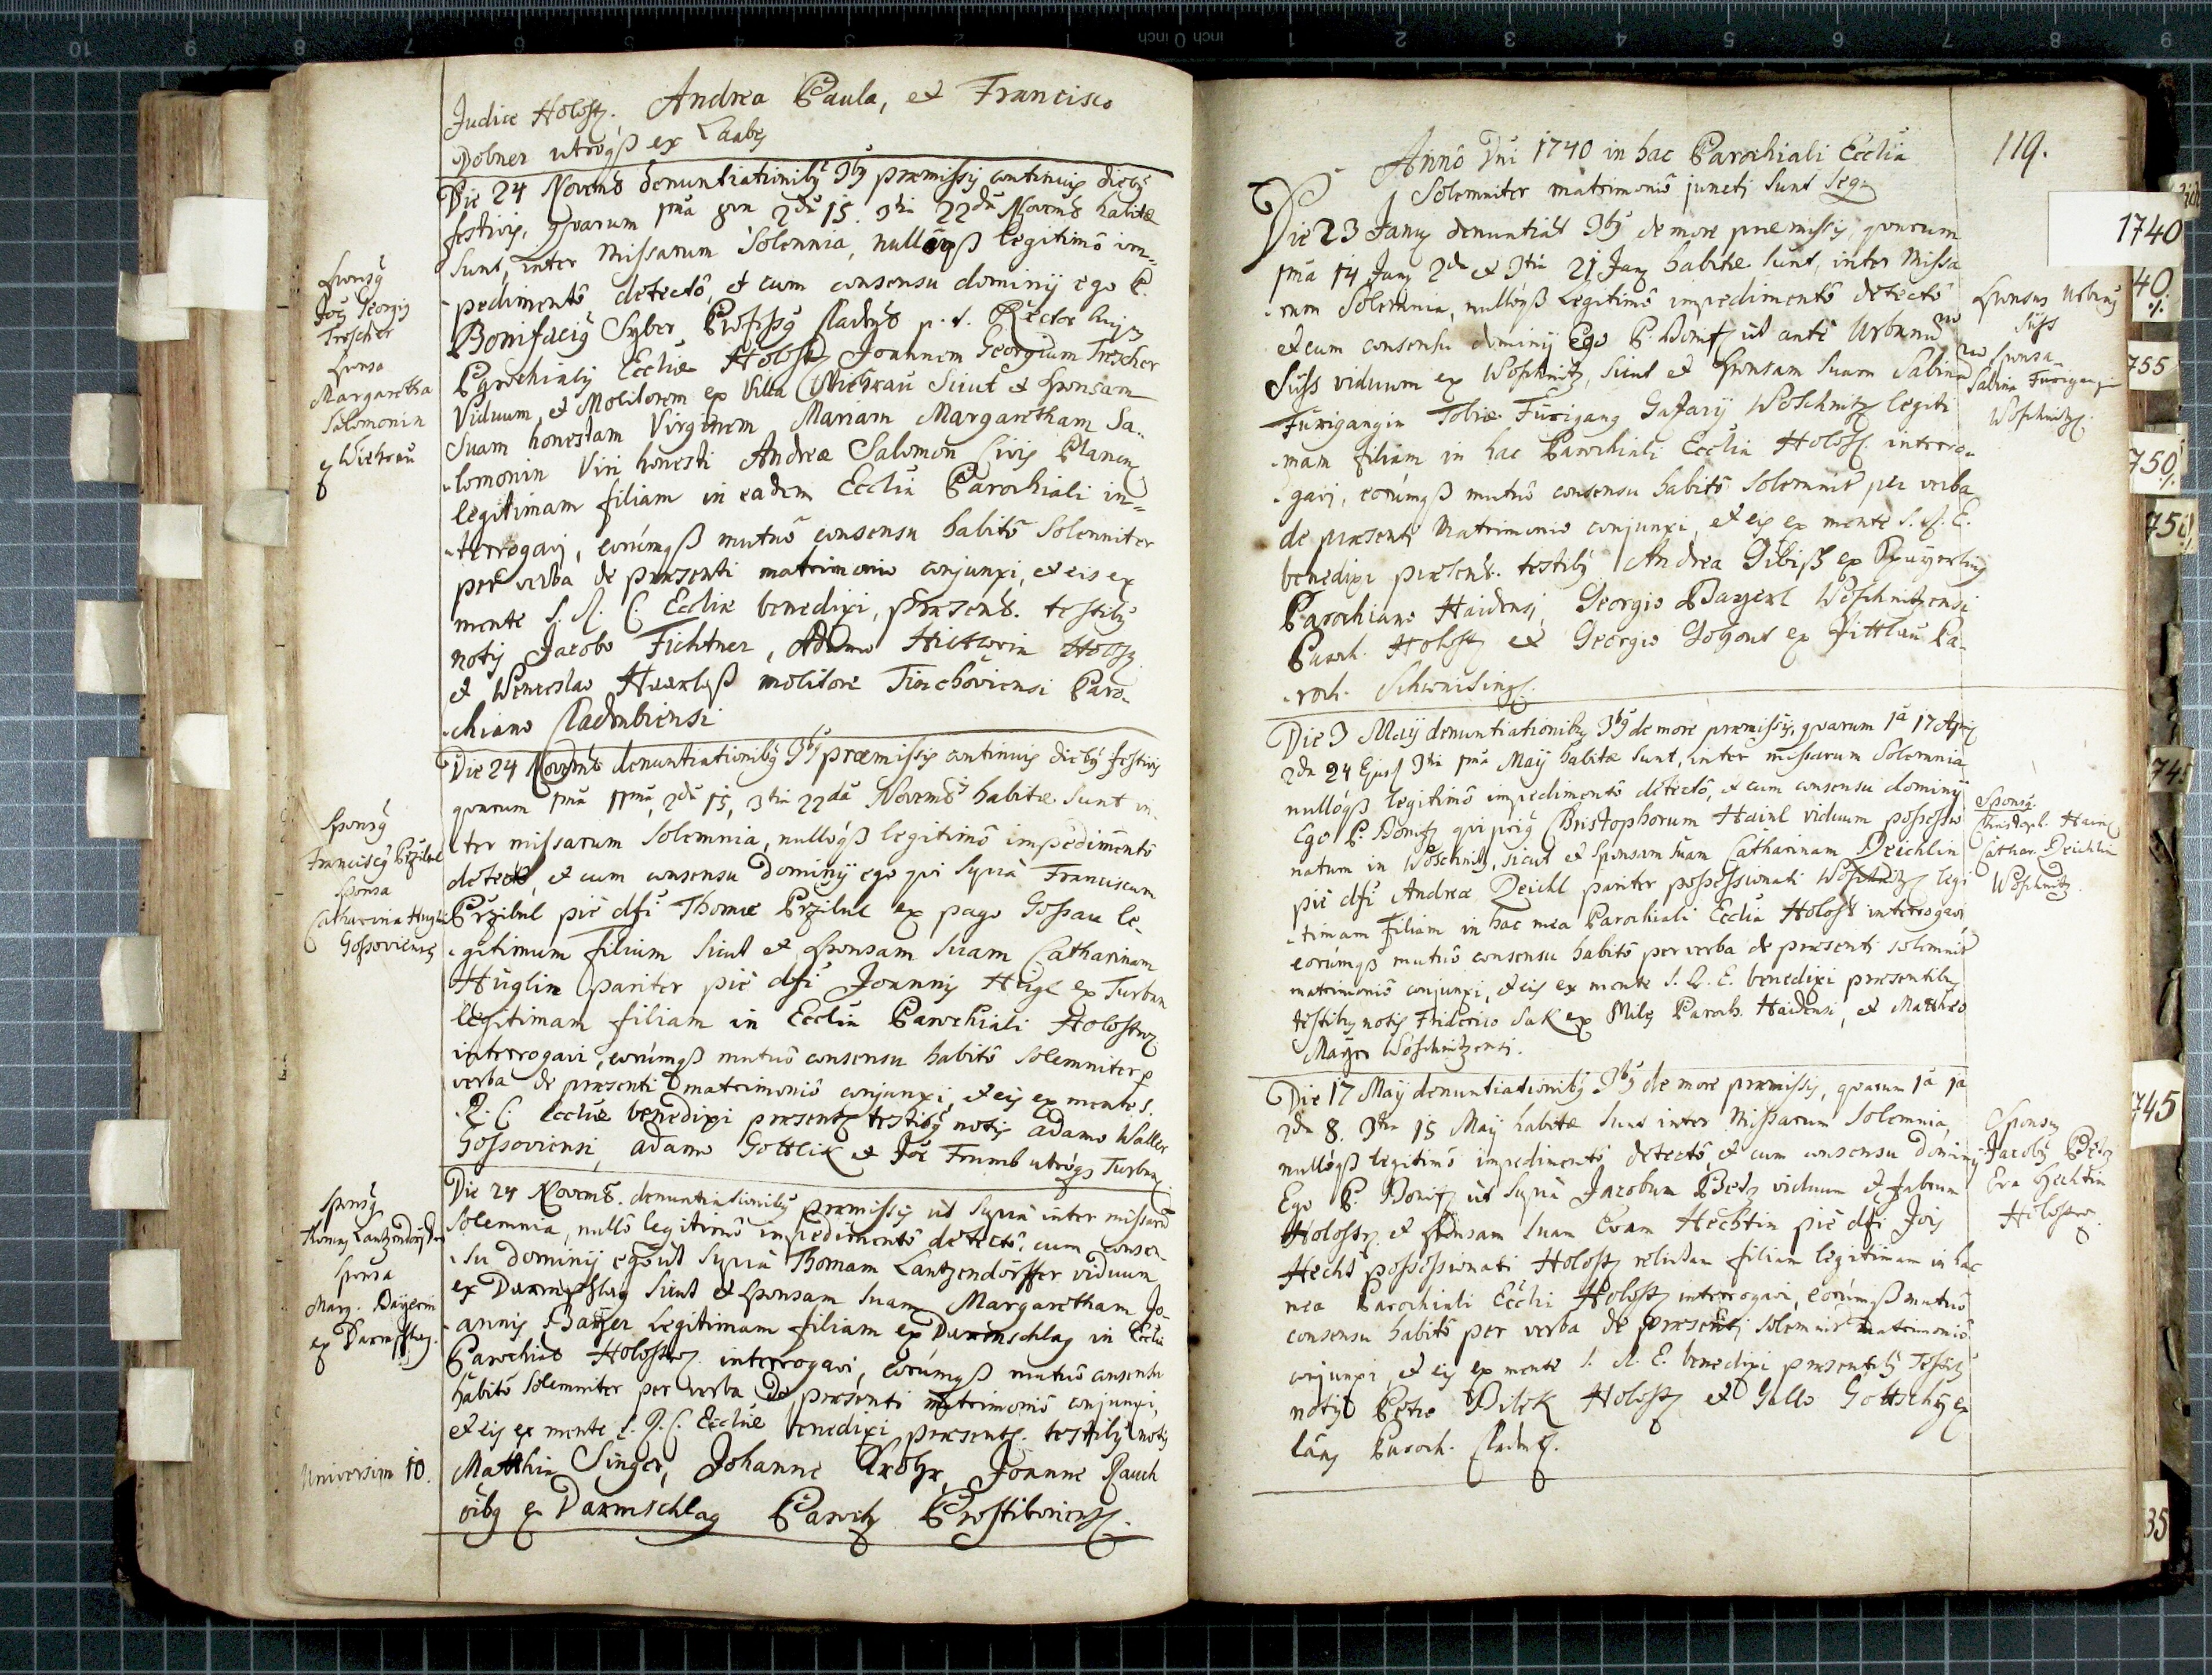 Judice Holost. Andrea Paula, et Francisco
Dobner utroqß ex Laabz
Die 24 Novemb denuntiationibq 3bq præmissis continuis diebq
festivis, quarum 1ma 8va 2da 15. 3tia 22da Novemb habitæ
sunt, inter Missarum Solemnia, nulloqß legitimô im=
=pedimentô detectô, et cum consensu dominij ego P.
Bonifacig Syber Professq p. t. Rector hujg
Parochialis Eccliæ Holost Joannem Georgium Trescher
Viduum, et Molitorem ex Villa Wiekrau sicut et sponsam
Suam honestam Virginem Mariam Margaretham Sa=
=lomonin Viri honesti Andreæ Salomon Civis Planen
legitimam filiam in eadem Ecclia Parochiali in=
=terrogavi, eorúmqß mutuô consensu habitô Solenniter
per verba de præsenti matrimonio conjunxi, et eis ex
mente S. R. C. Eccliæ benedixi, præsent. testibq
notis Jacobo Fichtner, Adamo Holost
et Wenceslao molitore Paro=
=chiano Cladrubiensi
Sponsq
Joës Georgig
Trescher
Sponsa
Margaretha
Salomonin
ex Wiekrau
Die 24 Novemb denuntiationibq 3bq præmissis continuis diebq festivis
quarum 1ma 11ma, 2da 15, 3tia 22da Novemb habitæ sunt in=
=ter missarum solemnia, nulloqß legitimô impedimentô
detectô, et cum consensu dominij ego qui supra Franciscum
Przibil piè dfti Thomæ Przibil ex pago Gossau le=
=gitimum filium sicut et sponsam suam Catharinam
Hüglin pariter piè dfti Joannis Hügl ex Turban
legitimam filiam in Ecclia Parochiali Holost
interrogavi, eorúmqß mutuô consensu habitô solemniter p
verba de præsenti matrimoniô conjunxi, et eis ex mente S.
R. C. Eccliæ benedixi præsent testibq notis Adamo Waller
Gossoviensi, Adamo Gottlik et Joë Frumb utroqß Turban
Sponsq
Franciscq Przibil
Sponsa
Catharina Hüglin
Gossoviens
Die 24 Novemb. denuntiationibq præmissis ut supra inter missarû
Solemnia, nullô legitimô impedimentô detectô, cum consen=
=su dominij ego ut supra Thomam Lantzendörffer viduum
ex Darmschlag sicut et sponsam suam Margaretham Jo=
=annis Bayer legitimam filiam ex Darmschlag in Ecclia
Parochiali Holost interrogavi, eorúmqß mutuô consensu
habitô solemniter per verba de præsenti matrimoniô conjunxi,
et eis ex mente S. R. C. Eccliæ benedixi præsent. testibq notis
Matthia Singer, Johanne Krohr, Joanne Rauch
oibq ex Darmschlag Paroch Prostiboriens.
Sponsq
Thomas Lantzendörffer
Sponsa
Marg. Bayerin
ex Darmschlag.
Universim 10.
Anno Dni 1740 in hac Parochiali Ecclia
Solemniter matrimoniô juncti sunt seq
119.
Die 23 Jany denuntiat 3bq de more præmissis, quarum
1ma 14 Jany 2da et 3tia 21 Jany habitæ sunt, inter Missa
=rum Solemnia, nullóqß legitimô impedimentô detectô
et cum consensu dominij Ego P. Bonif ut ante Urbanum
Süss viduum ex Woschnitz, sicut et sponsam suam Sabinam
Fürigangin Tobiæ Fürigang Woschnitz legiti
=mam filiam in hac Parochiali Ecclia Holost interro=
=gavi, eorúmqß mutuô consensu habitô solemnit per verba
de præsenti Matrimonio conjunxi, et eis ex mente S. R. E.
benedixi præsent. testibq Andrea Gibiß ex
Parochiano Haidensi, Georgio Bayerl Woschnitzensi
Paroch. Holost et Georgio ex Zittlau Pa=
=roch. Schwnising.
Sponsus Urbang
Süss
Sponsa
Sabina Fürigangin
Woschnitz.
Die 3 Maij denuntiationibq 3bq de more præmissis, quarum 1a 17 Apr
2da 24 Ejusd 3tia 1ma Maij habitæ sunt, inter missarum Solemnia
nullóqß legitimô impedimentô detectô, et cum consensu dominij
Ego P. Bonif qui priq Christophorum Hainl viduum possessio
natum in Woschnitz, sicut et sponsam suam Catharinam Deichlin
piè dfti Andreæ Deichl pariter possessionati Woschnitz legi
=timam filiam in hac mea Parochiali Ecclia Holost interrogavi
eorúmqß mutuô consensu habitô per verba de præsenti solemnit
matrimoniô conjunxi, et eis ex mente S. R. E. benedixi præsentibq
testibq notis Friderico Sak ex Milz Paroch. Haidensi, et Matthæo
Mayer Woschnitzensi.
Sponsq
Christoph. Hainl
Cathar. Deichlin
Woschnitz.
Die 17 Maij denuntiationibq 3bq de more præmissis, quarum 1a 1a
2da 8. 3tia 15 Maij habitæ sunt inter Missarum Solemnia,
nullóqß legitimô impedimentô detectô, et cum consensu dominij
Ego P. Bonif ut supra Jacobum Betz viduum et fabrum
Holost. et sponsam suam Evam Hechtin piè dfti Jois
Hecht possessionati Holost relictam filiam legitimam in hac
mea Parochiali Ecclia Holost interrogavi, eorúmqß mutuô
consensu habitô per verba de præsenti solemnit matrimoniô
conjunxi, et eis ex mente S. R. E. benedixi præsentibq testibq
notis Petro Bilek Holost et Gallo Gottschy ex
Laas Paroch. Cladr.
Sponsq
Jacobq Betz
Eva Hechtin
Holost.
1740
40
755
750
745
745
35